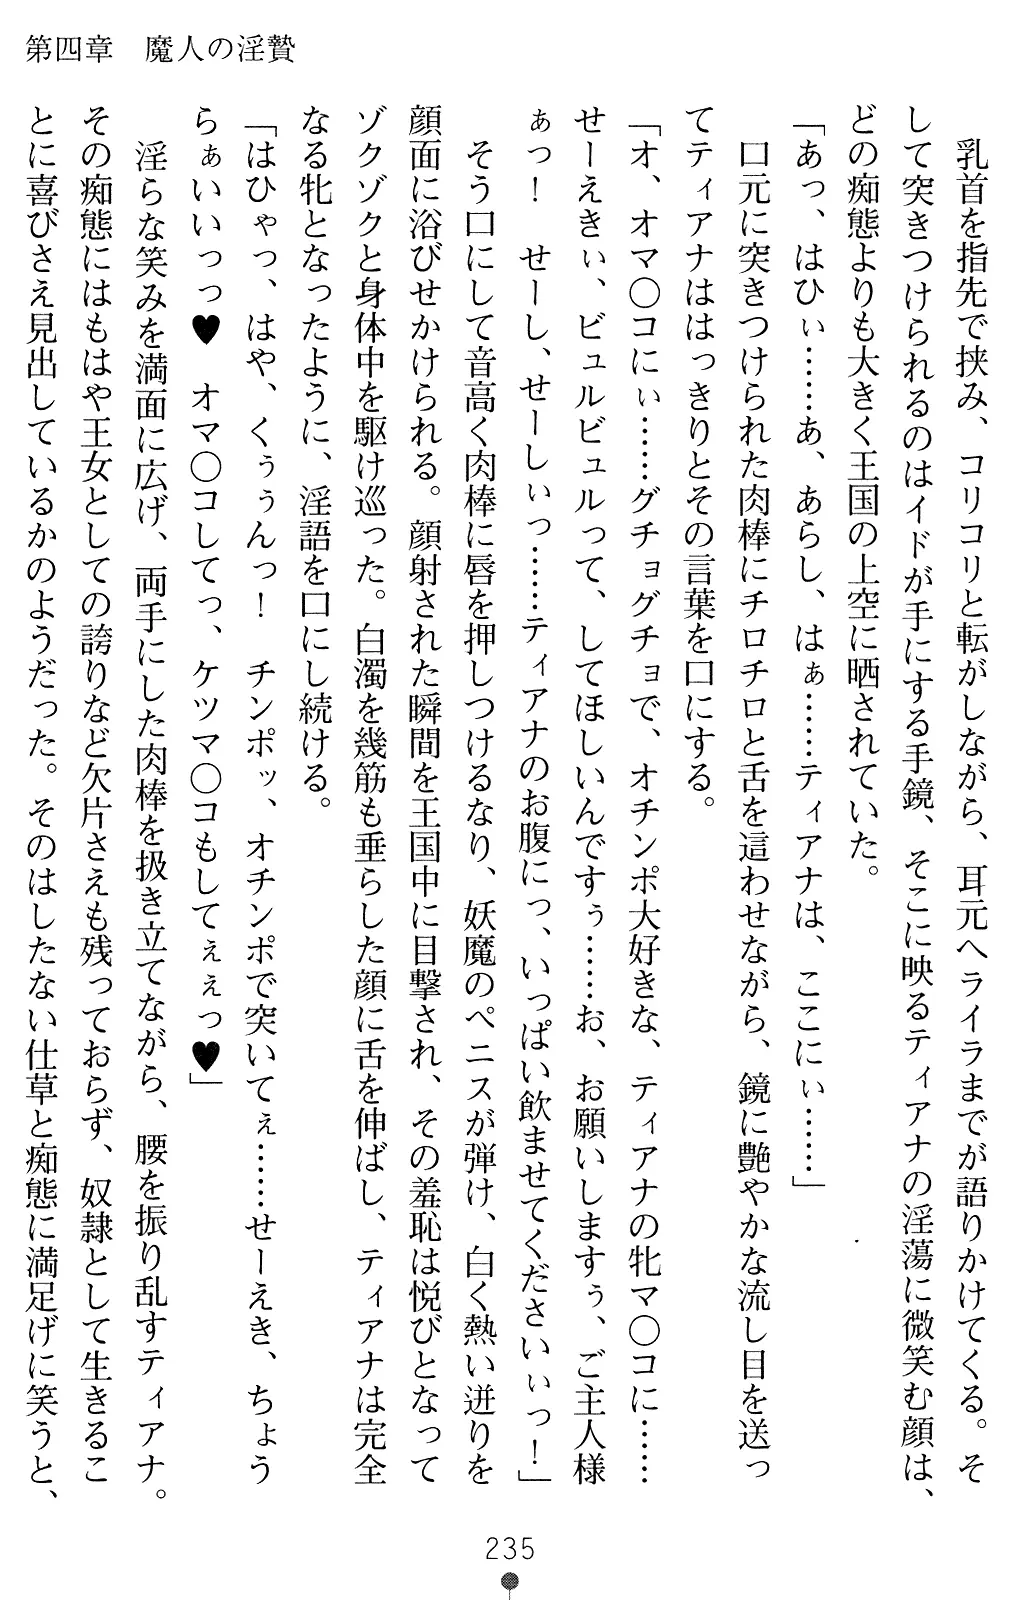 第四章　魔人の淫贄
乳首を指先で挟み、コリコリと転がしながら、耳元へライラまでが語りかけてくる。そ
して突きつけられるのはイドが手にする手鏡、そこに映るティアナの淫蕩に微笑む顔は、
どの痴態よりも大きく王国の上空に晒されていた。
「あっ、はひぃ……あ、あらし、はぁ……ティアナは、ここにぃ……」
口元に突きつけられた肉棒にチロチロと舌を這わせながら、鏡に艶やかな流し目を送っ
てティアナははっきりとその言葉を口にする。
「オ、オマ〇コにぃ……グチョグチョで、オチンポ大好きな、ティアナの牝マ〇コに……
せーえきぃ、ビュルビュルって、してほしいんですぅ……お、お願いしますぅ、ご主人様
ぁっ！　せーし、せーしぃっ……ティアナのお腹にっ、いっぱい飲ませてくださいぃっ！」
そう口にして音高く肉棒に唇を押しつけるなり、妖魔のペニスが弾け、白く熱い迸りを
顔面に浴びせかけられる。顔射された瞬間を王国中に目撃され、その羞恥は悦びとなって
ゾクゾクと身体中を駆け巡った。白濁を幾筋も垂らした顔に舌を伸ばし、ティアナは完全
なる牝となったように、淫語を口にし続ける。
「はひゃっ、はや、くぅぅんっ！　チンポッ、オチンポで突いてぇ……せーえき、ちょう
らぁいいっっ♥　オマ〇コしてっ、ケツマ〇コもしてぇぇっ♥」
淫らな笑みを満面に広げ、両手にした肉棒を扱き立てながら、腰を振り乱すティアナ。
その痴態にはもはや王女としての誇りなど欠片さえも残っておらず、奴隷として生きるこ
とに喜びさえ見出しているかのようだった。そのはしたない仕草と痴態に満足げに笑うと、
235